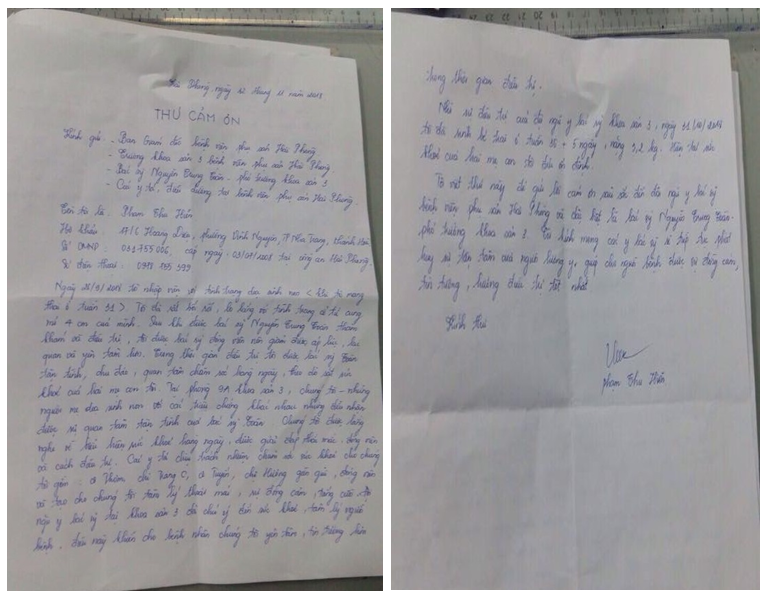 Hải Phòng, ngày 12 tháng 11 năm 2018
THƯ CẢM ƠN
Kính gửi: - Ban Giám đốc bệnh viện phụ sản Hải Phòng
- Trưởng khoa sản 3 bệnh viện phụ sản Hải Phòng
- Bác sỹ Nguyễn Trung Toàn - phó trưởng khoa sản 3
- Các y tá, điều dưỡng tại bệnh viện phụ sản Hải Phòng.
Tên tôi là: Phạm Thu Hiền
Hộ khẩu: Hoàng Diệu, phường Vĩnh Nguyên, TP Nha Trang, Khánh Hòa
Số CMND: cấp ngày: tại công an Hải Phòng.
Số điện thoại:
Ngày tôi nhập viện với tình trạng dọa sinh non < khi tôi mang
thai ở tuần 31 > Tôi đã rất bối rối, lo lắng về tình trạng cổ tử cung
mở 4 cm của mình. Sau khi được bác sỹ Nguyễn Trung Toàn thăm
khám và điều trị, tôi được bác sỹ động viên nên giảm được áp lực, lạc
quan và yên tâm hơn. Trong thời gian điều trị tôi được bác sỹ Toàn
tận tình, chu đáo, quan tâm chăm sóc hàng ngày, theo dõi sát sức
khoẻ của hai mẹ con tôi. Tại phòng khoa sản 3, chúng tôi - những
người mẹ dọa sinh non với các triệu chứng khác nhau nhưng đều nhận
được sự quan tâm tận tình của bác sỹ Toàn. Chúng tôi được lắng
nghe về biểu hiện sức khoẻ hàng ngày, được giải đáp thắc mắc, động viên
và cách điều trị. Các y tá chịu trách nhiệm chăm sóc sức khoẻ cho chúng
tôi gồm: chị chị Hương gần gũi, động viên
và tạo cho chúng tôi tâm lý thoải mái, sự đồng cảm,
ngũ y bác sỹ tại khoa sản 3 đã chú ý đến sức khoẻ, tâm lý người
bệnh, điều này khiến cho bệnh nhân chúng tôi yên tâm, tin tưởng hơn
trong thời gian điều trị.
Nhờ sự điều trị của đội ngũ y bác sỹ khoa sản 3, ngày 31/10/2018
tôi đã sinh bé trai ở tuần 36 + 5 ngày, nặng 3,2 kg. Hiện tại sức
khoẻ của hai mẹ con tôi đều ổn định.
Tôi viết thư này để gửi lời cảm ơn sâu sắc đến đội ngũ y bác sỹ
bệnh viện phụ sản Hải Phòng và đặc biệt là bác sỹ Nguyễn Trung Toàn-
phó trưởng khoa sản 3. Tôi kính mong các y bác sỹ sẽ tiếp tục phát
huy sự tận tâm của người lương y, giúp cho người bệnh được sự đồng cảm,
tin tưởng, hướng điều trị tốt nhất.
Kính thư
Phạm Thu Hiền